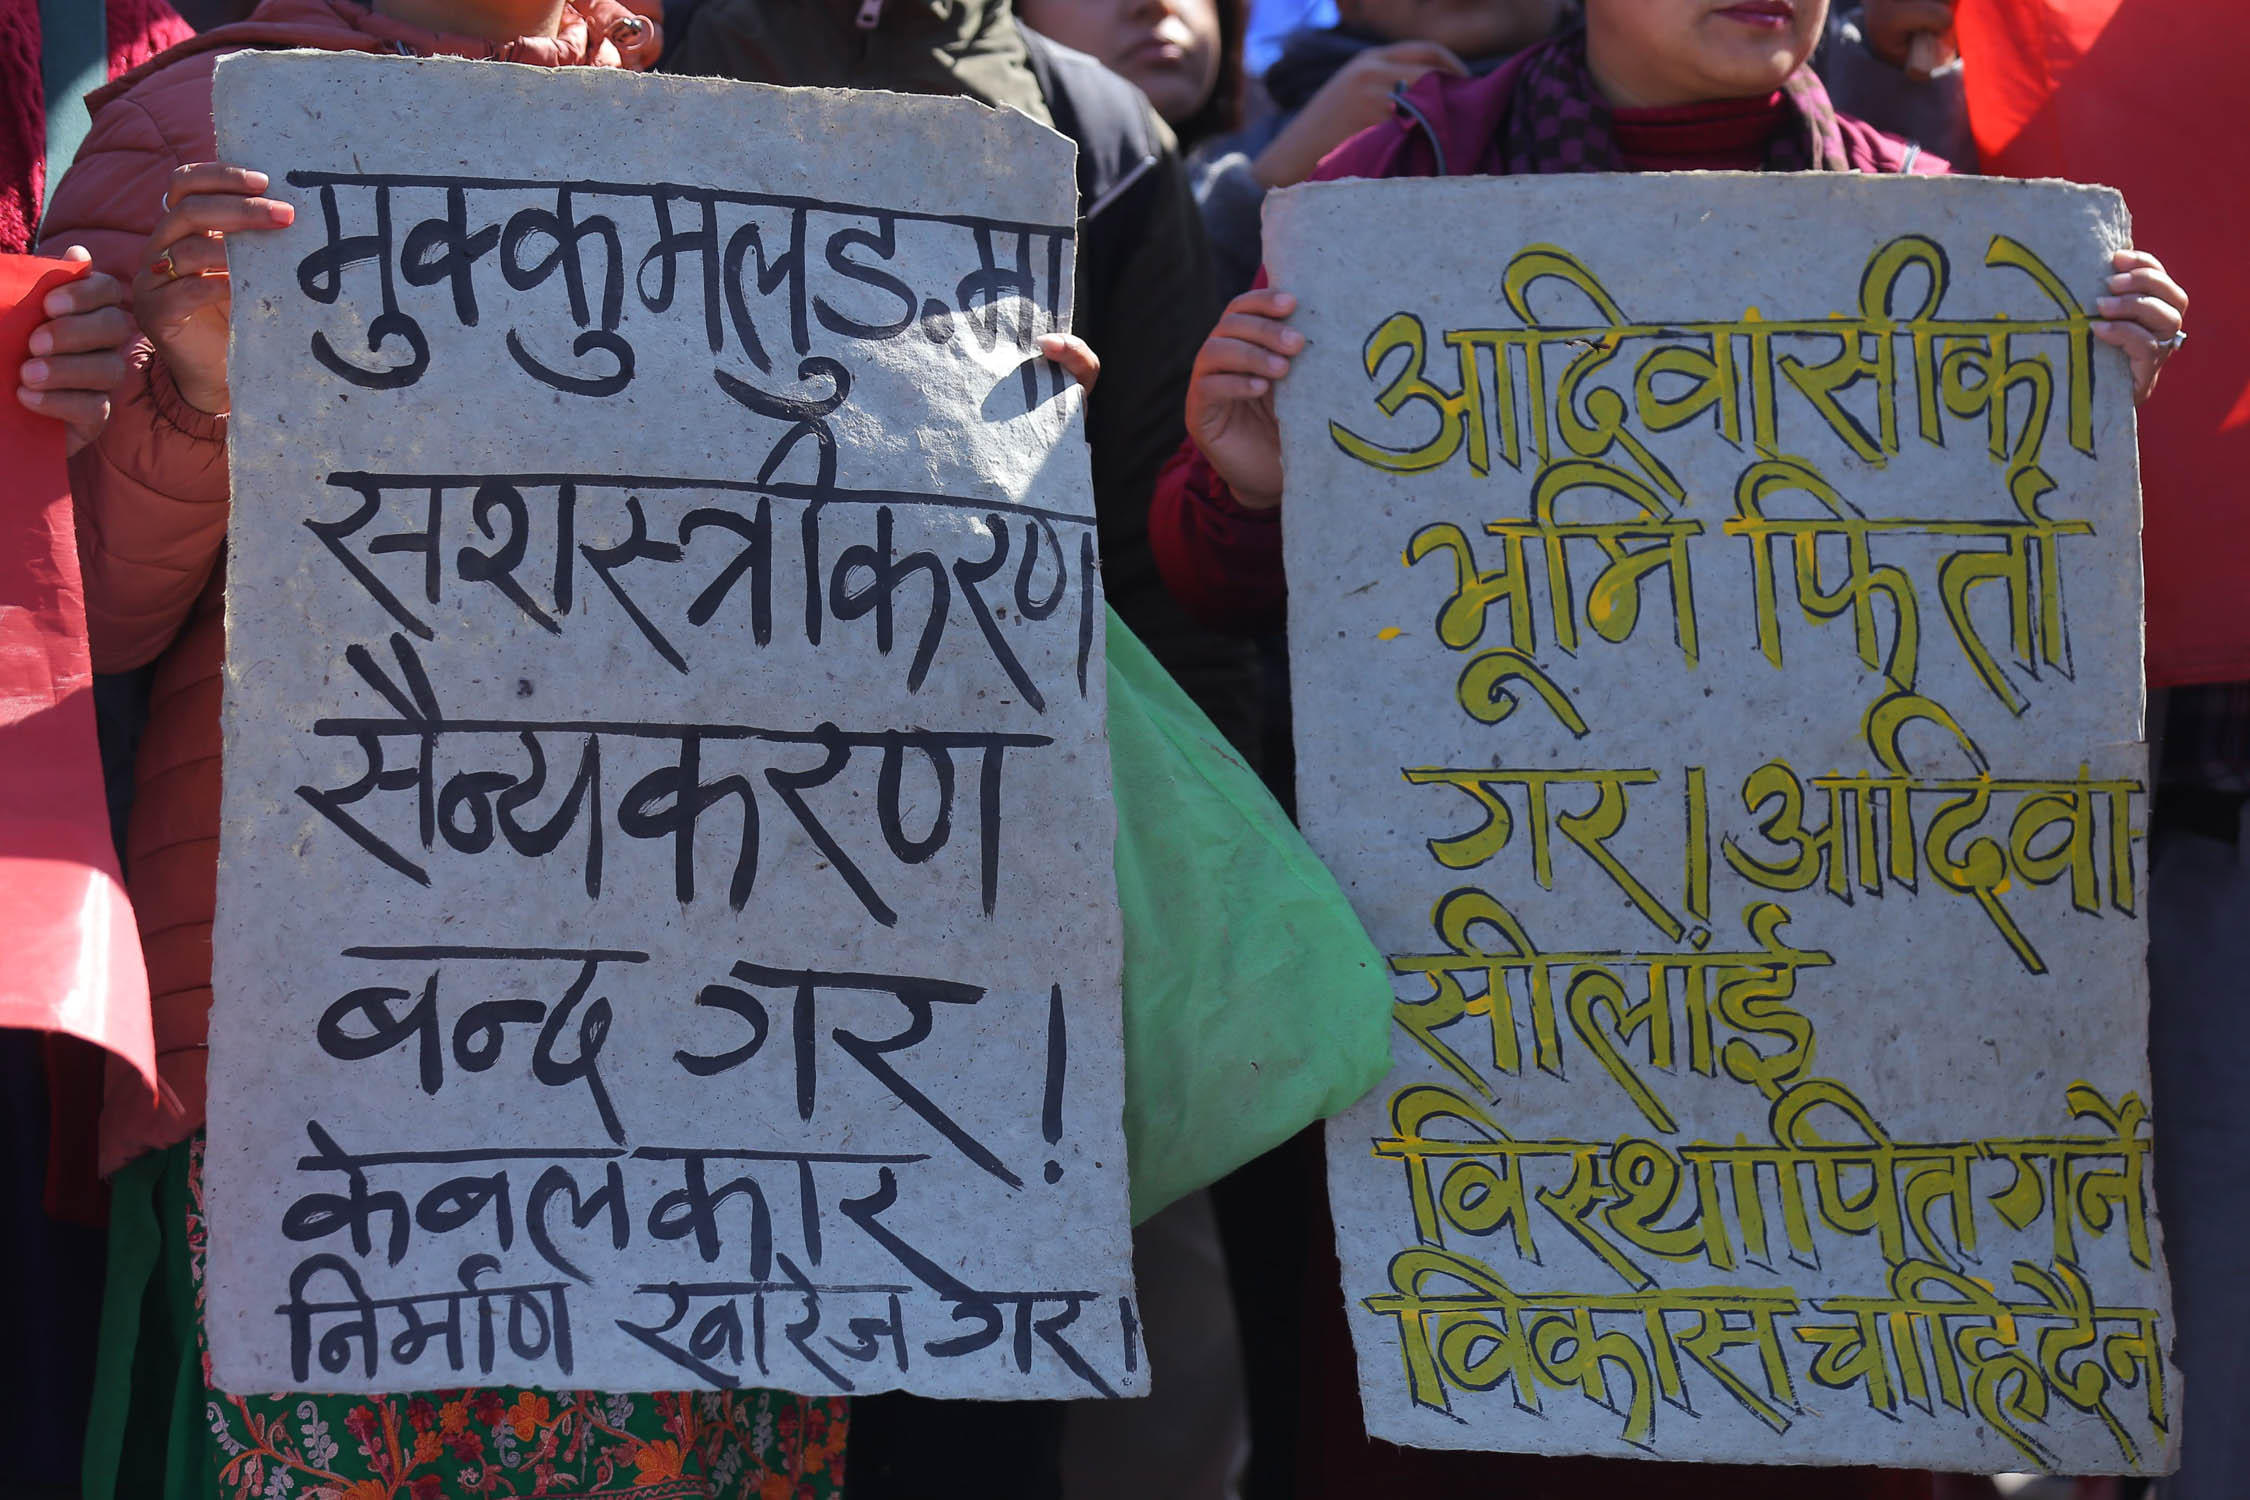 मुक्कुमलुङ.मा
सशस्त्रीकरण
सैन्यकरण
बन्द गर!
केबलकार
निर्माण खारेज गर।
आदिवासीको
भूमि फिर्ता
गर। आदिवा-
सीलाई
विस्थापित गर्ने
विकास चाहिदैन